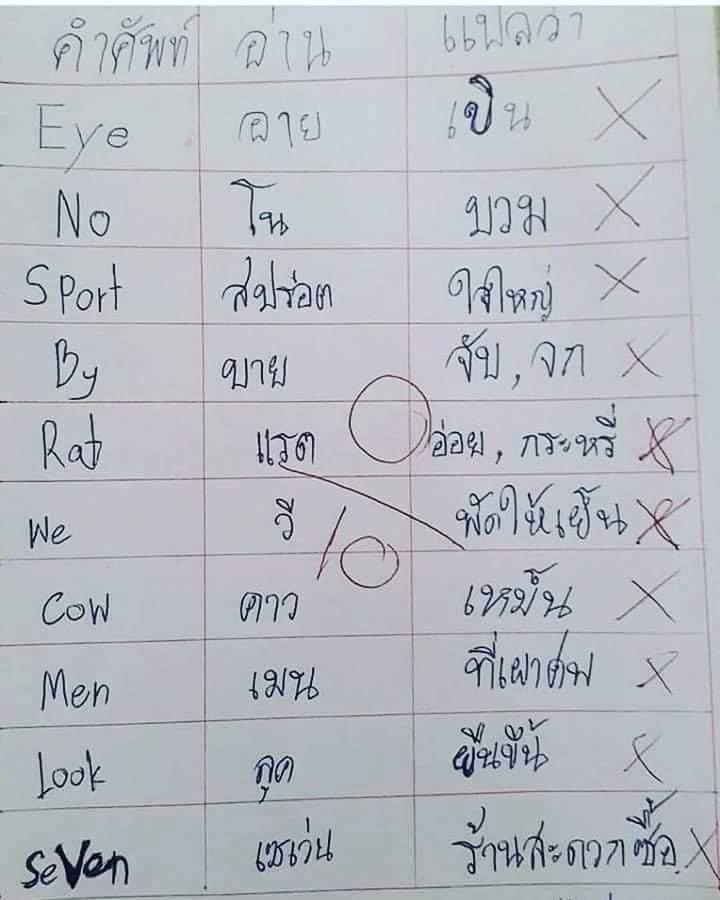 คำศัพท์ อ่าน แปลว่า
Eye อาย เขิน
No โน บวม
Sport สปร่อต ใจใหญ่
By บาย จับ, จก
Rat แรด อ่อย, กระหรี่
We วี พัดให้เย็น
Cow คาว เหม็น
Men เมน ที่เผาศพ
Look ลุค ยืนขึ้น
Seven เซเว่น ร้านสะดวกซื้อ